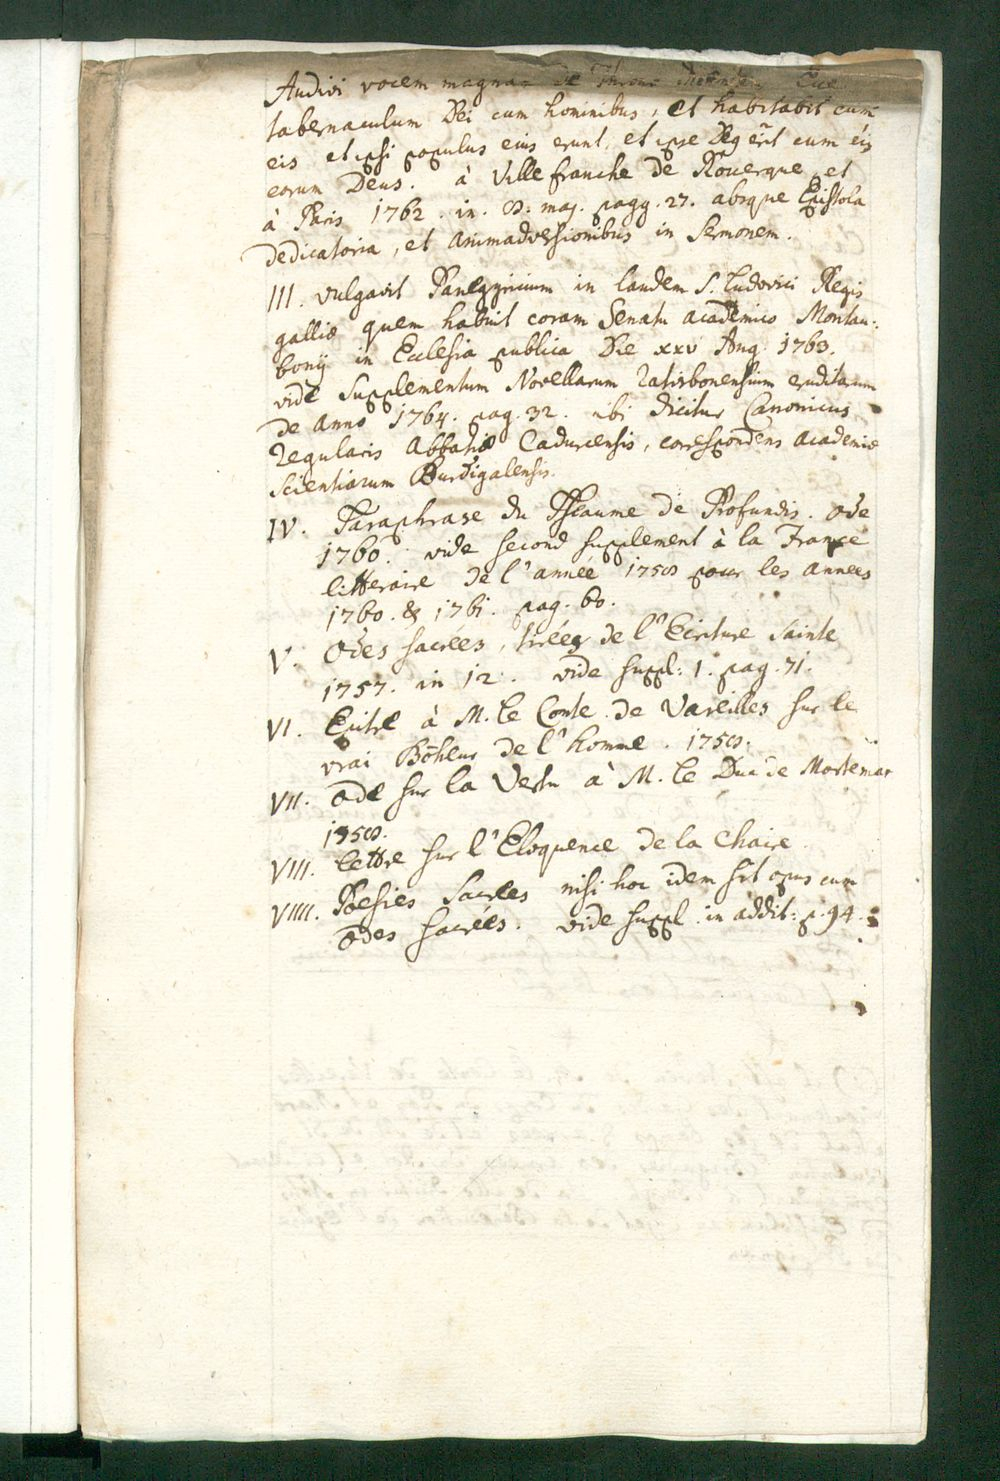 Audivi vocem magnam de throno dicentem Ecce
tabernaculum Dei cum hominibus, et habitabit cum
eis et ipsi populus eius erunt, et ipse Deg erit cum eis
eorum Deus. à Ville franche de Rouergue, et
à Paris 1762. in. 8. maj. pagg. 27. absque Epistola
dedicatoria, et animadversionibus in Sermonem.
III. vulgavit Panegyricum in laudem S. Ludovici Regis
galliæ quem habuit coram Senatu academico Montau-
bonij in Ecclesia publica Die xxv Aug. 1763.
vide Supplementum Novellarum Ratisbonensium eruditarum
de anno 1764. pag. 32. ubi dicitur Canonicus
regularis Abbatiæ Cadurcensis, correspondens academiæ
Scientiarum Burdigalensis.
IV. Paraphrase du Pseaume de Profundis. Ode
1760. vide second supplement à la France
litteraire de l'année 1758 pour les annees
1760. & 1761. pag. 60.
V. Odes sacrées, tirées de l'Ecriture Sainte
1757. in 12. vide suppl: 1. pag. 71.
VI. Epitre à M. le Conte de Vareilles sur le
vrai Bõheur de l'homme. 1758.
VII. Ode sur la Vertu à M. le Duc de Mortemar
1758.
VIII. Lettre sur l'Eloquence de la Chaire.
VIIII. Poesies Sacrees nisi hoc idem sit opus cum
Odes sacrées. vide suppl. in addit: p. 94.